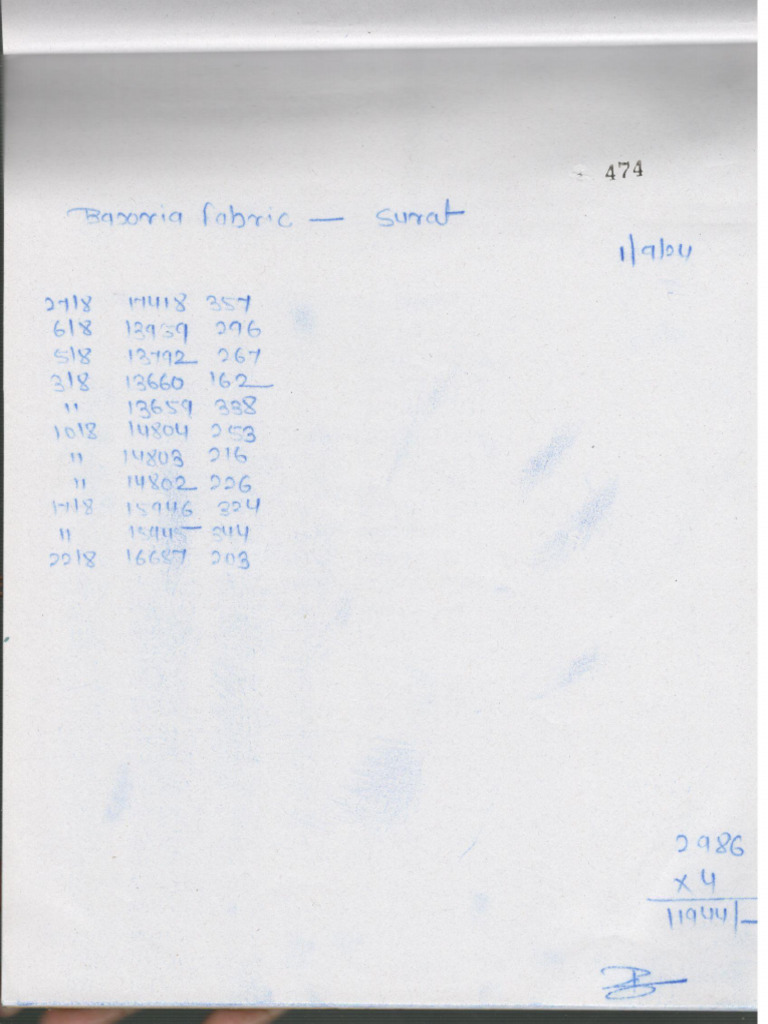 474
fabric — Surat
1/9/24
27/8 17418 357
6/8 13959 296
5/8 13792 267
3/8 13660 162
" 13659 338
10/8 14804 253
" 14803 216
" 14802 226
17/8 15946 324
" 15945 344
22/8 16687 203
2986
x 4
11944/-